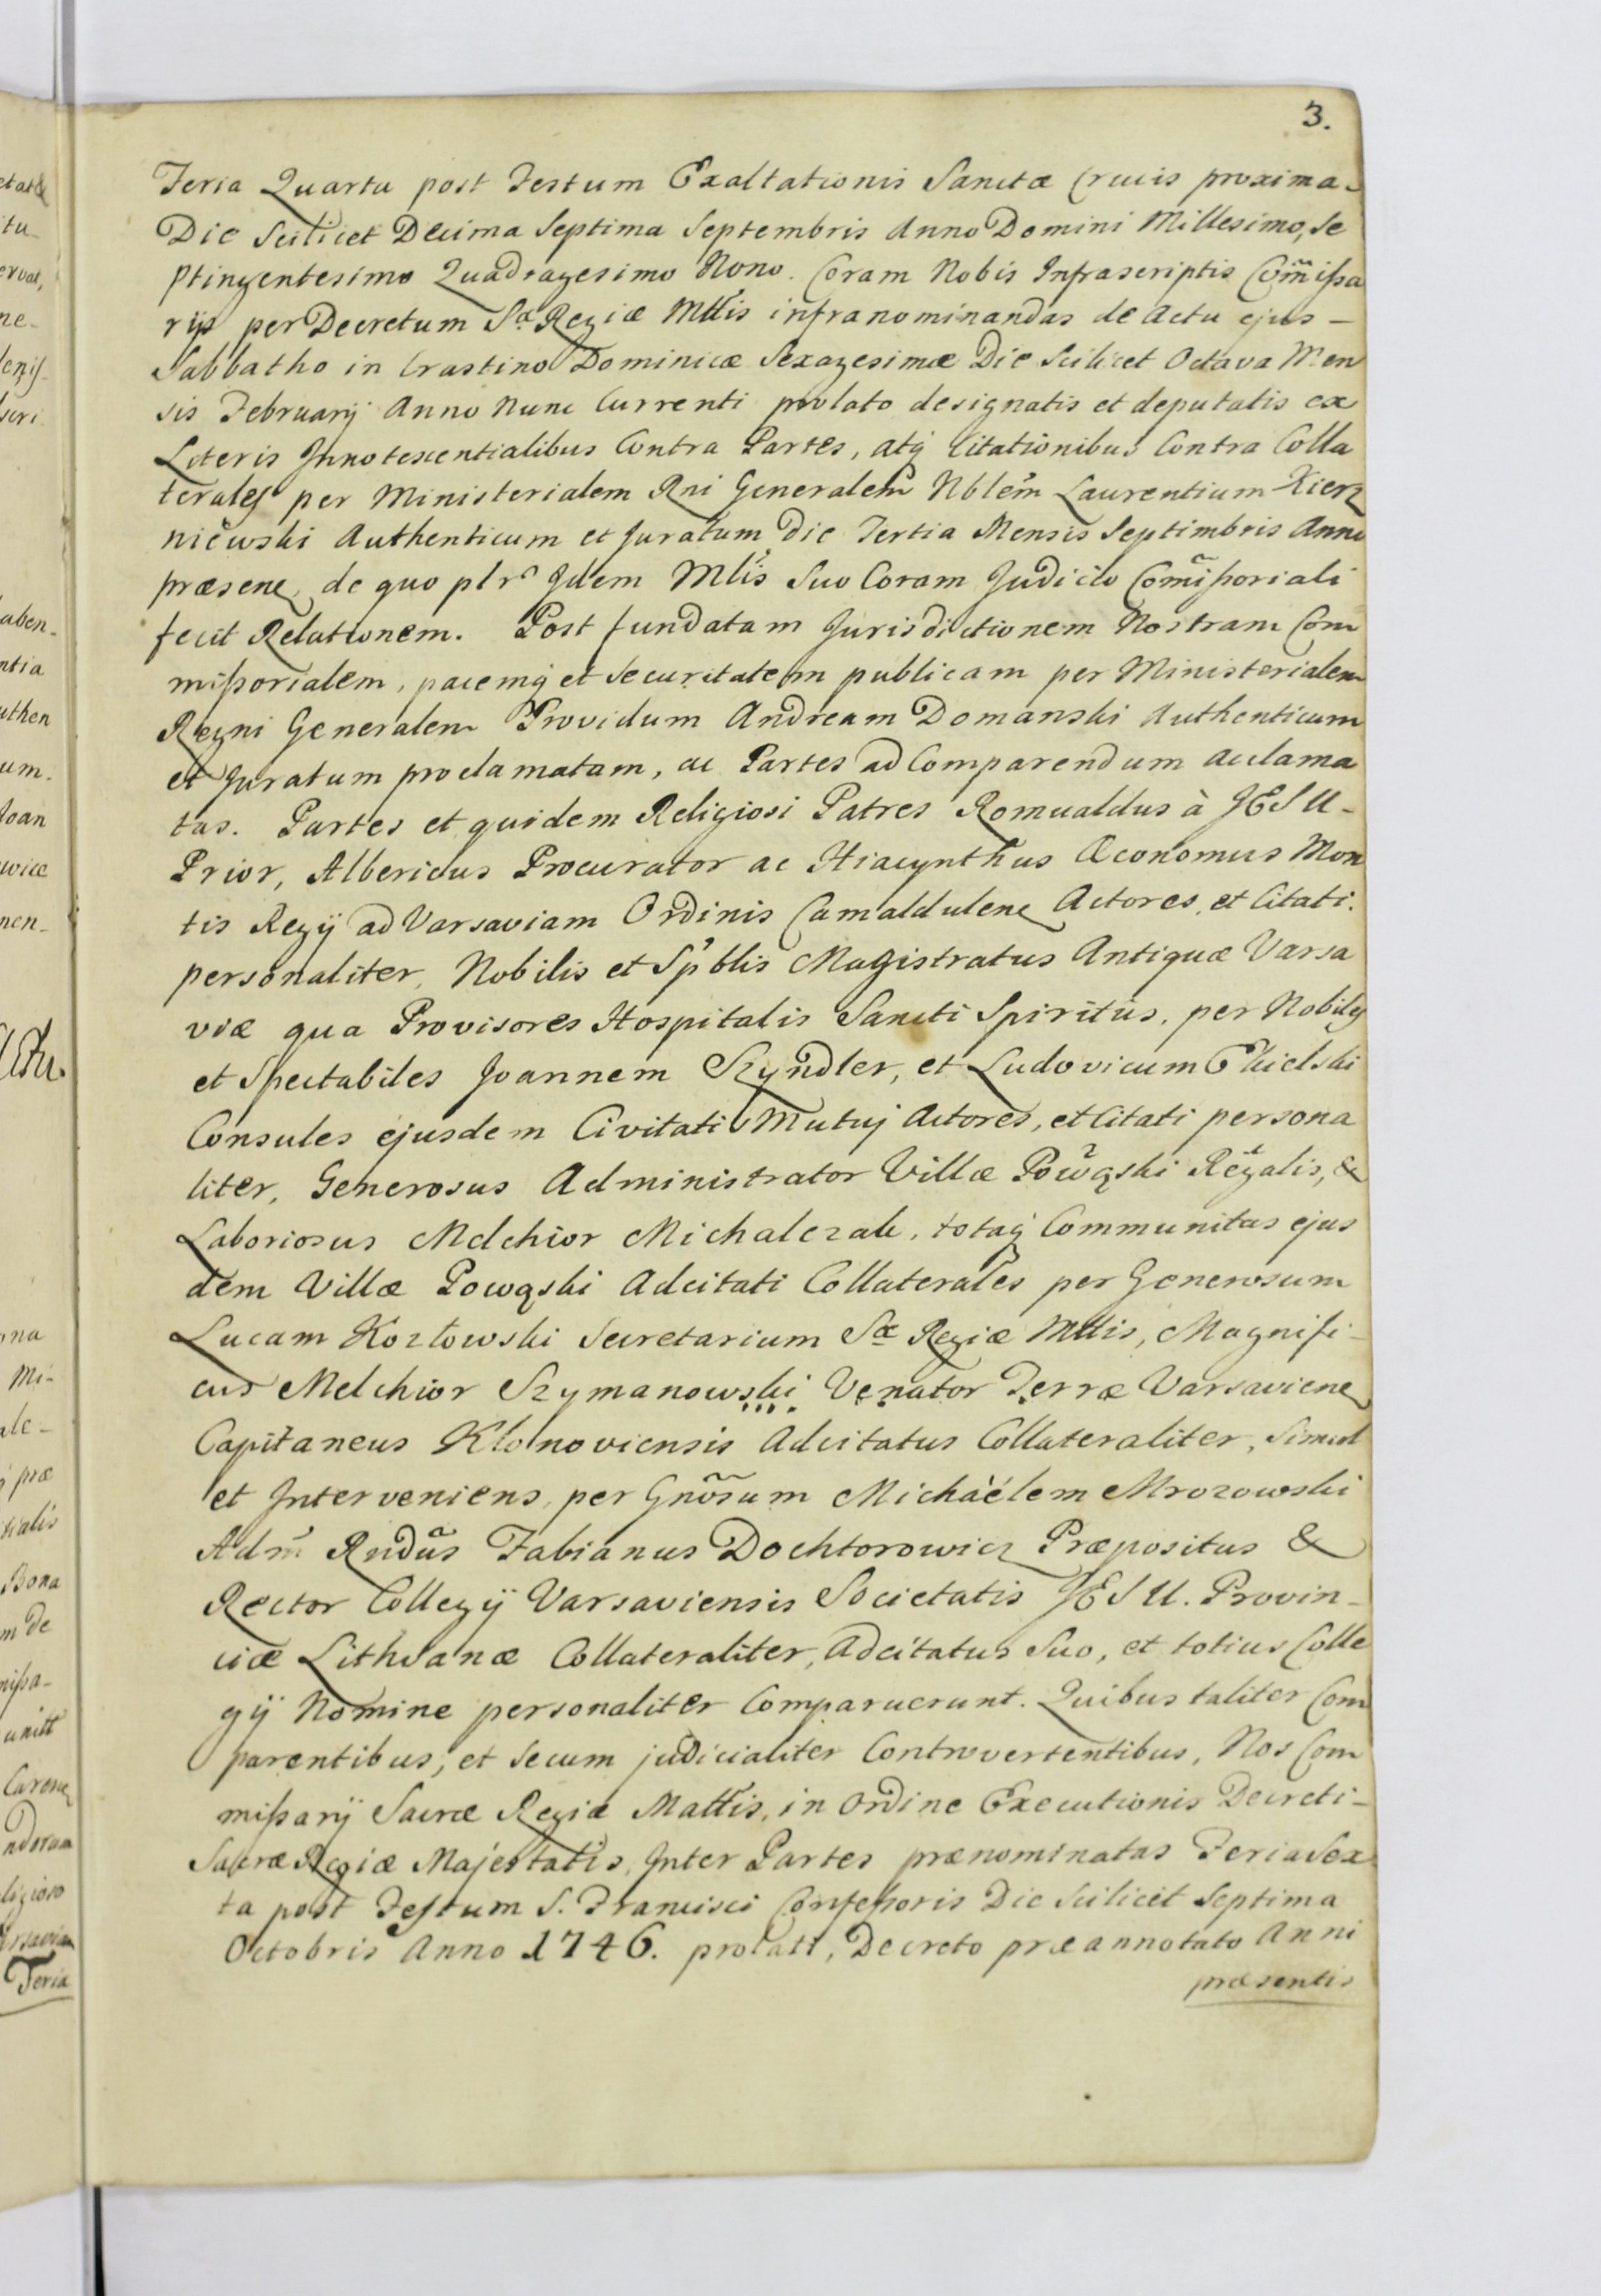 3.
Feria Quarta post Festum Exaltationis Sanctæ Crucis proxima
Die Scilicet Decima Septima Septembris Anno Domini Millesimo, Se
ptingentesimo Quadragesimo Nono. Coram Nobis Infrascriptis Com̃ißa
rijs per Decretum Sæ Regiæ Mttis infranominandas de Actu ejus –
Sabbatho in Crastino Dominicæ Sexagesimæ Die Scilicet Octava Men
sis Februarij Anno Nunc Currenti prolato designatis et deputatis ex
Literis Innotescentialibus Contra Partes, atq́ Citationibus Contra Colla
terales per Ministerialem Rni Generalem Nblem Laurentium Kierz
niewski Authenticum et Juratum Die Tertia Mensis Septimbris Anni
præsene, de quo ptr Idem Mlis Suo Coram Judicio Com̃ißoriali
fecit Relationem. Post fundatam Jurisdictionem Nostram Com
mißorialem, pacemq́ et Securitatem publicam per Ministerialem
Regni Generalem Providum Andream Domanski Authenticum
et Juratum proclamatam, ac Partes ad Comparendum Acclama
tas. Partes et quidem Religiosi Patres Romualdus à JESU –
Prior, Albericus Procurator ac Hiacynthus Œconomus Mon
tis Regij ad Varsaviam Ordinis Camaldulene Actores, et Citati.
personaliter, Nobilis et Spblis Magistratus Antiquæ Varsa
viæ qua Provisores Hospitalis Sancti Spiritûs, per Nobiles
et Spectabiles Joannem Szyndler, et Ludovicum
Consules ejusdem Civitatis Mutuj Actores, et Citati persona
liter, Generosus Administrator Villæ Powąski Regalis, &
Laboriosus Melchior Michalczak, totaq́ Communitas ejus
dem Villæ Powąski Adcitati Collaterales per Generosum
Lucam Kozłowski Secretarium Sæ Regiæ Mttis, Magnifi –
cus Melchior Szymanowski Venator Terræ Varsaviene
Capitaneus Klonoviensis Adcitatus Collateraliter, Simul
et Interveniens, per Gnõsum Michaèlem Mrozowski
Adm Rndũs Fabianus Dochtorowicz Præpositus &
Rector Collegij Varsaviensis Societatis JESU. Provin –
ciæ Lithvanæ Collateraliter, Adcitatus Suo, et totius Colle
gij Nomine personaliter Comparuerunt. Quibus taliter Com
parentibus, et Secum judicialiter Controvertentibus, Nos Com
mißarij Sacræ Regiæ Mattis, in Ordine Executionis Decreti –
Sacræ Regiæ Majestatis, Inter Partes prænominatas Feria Sex
ta post Festum S. Francisci Confeßoris Die Scilicet Septima
Octobris Anno 1746. prolati, Decreto præannotato Anni
præsentis